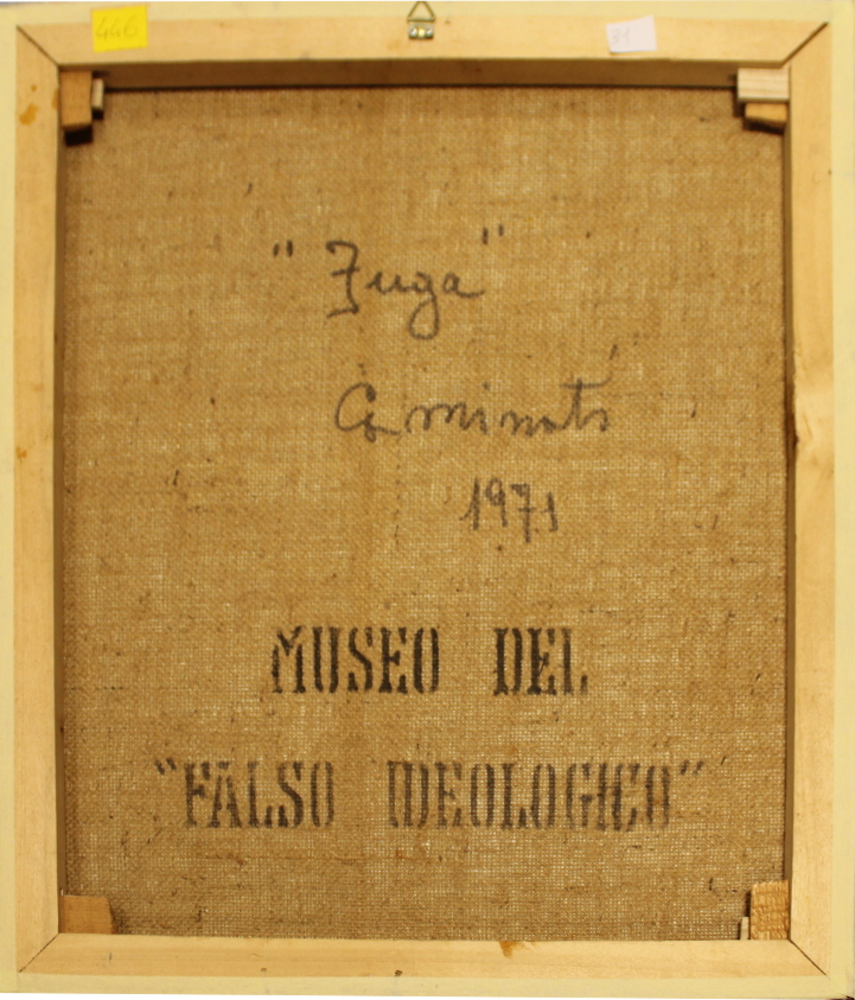 446
31
"Fuga"
Caminati
1971
MUSEO DEL
"FALSO IDEOLOGICO"